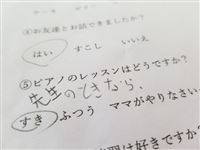 ④お友達とお話できましたか？
はい　すこし　いいえ
⑤ピアノのレッスンはどうですか？
先生のときなら、
すき　ふつう　ママがやりなさい
は好きですか？